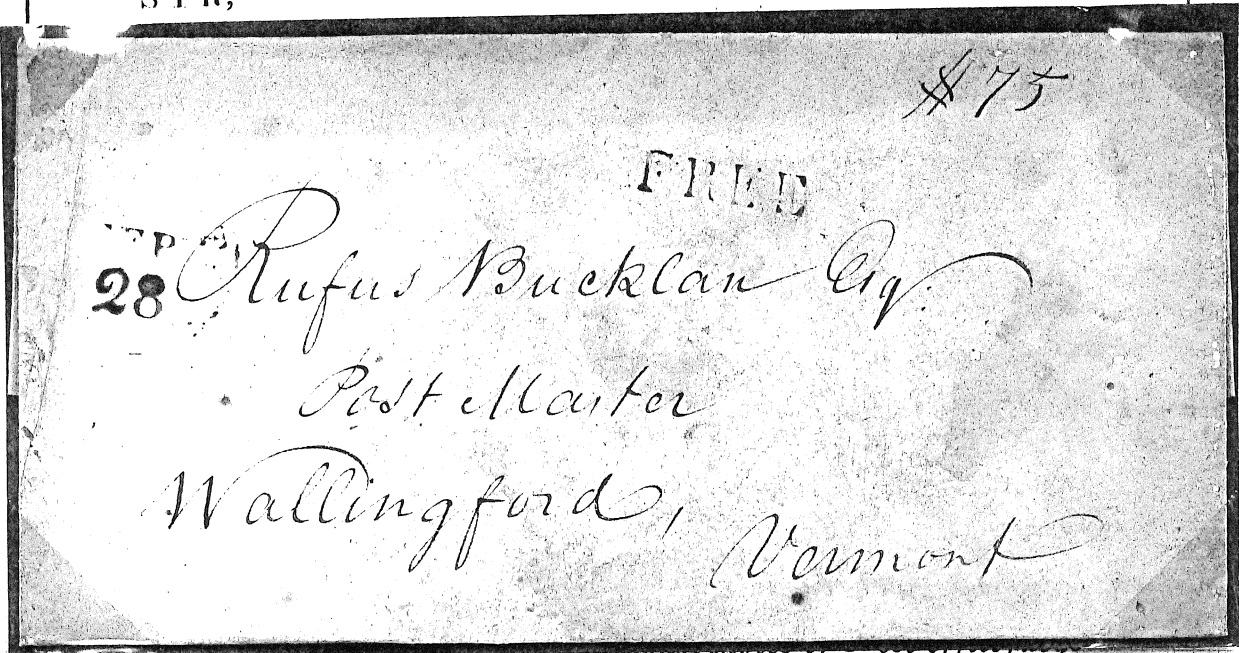 SIR,
$75
FREE
28
Rufus Bucklan Esq.
Post Master
Wallingford,
Vermont